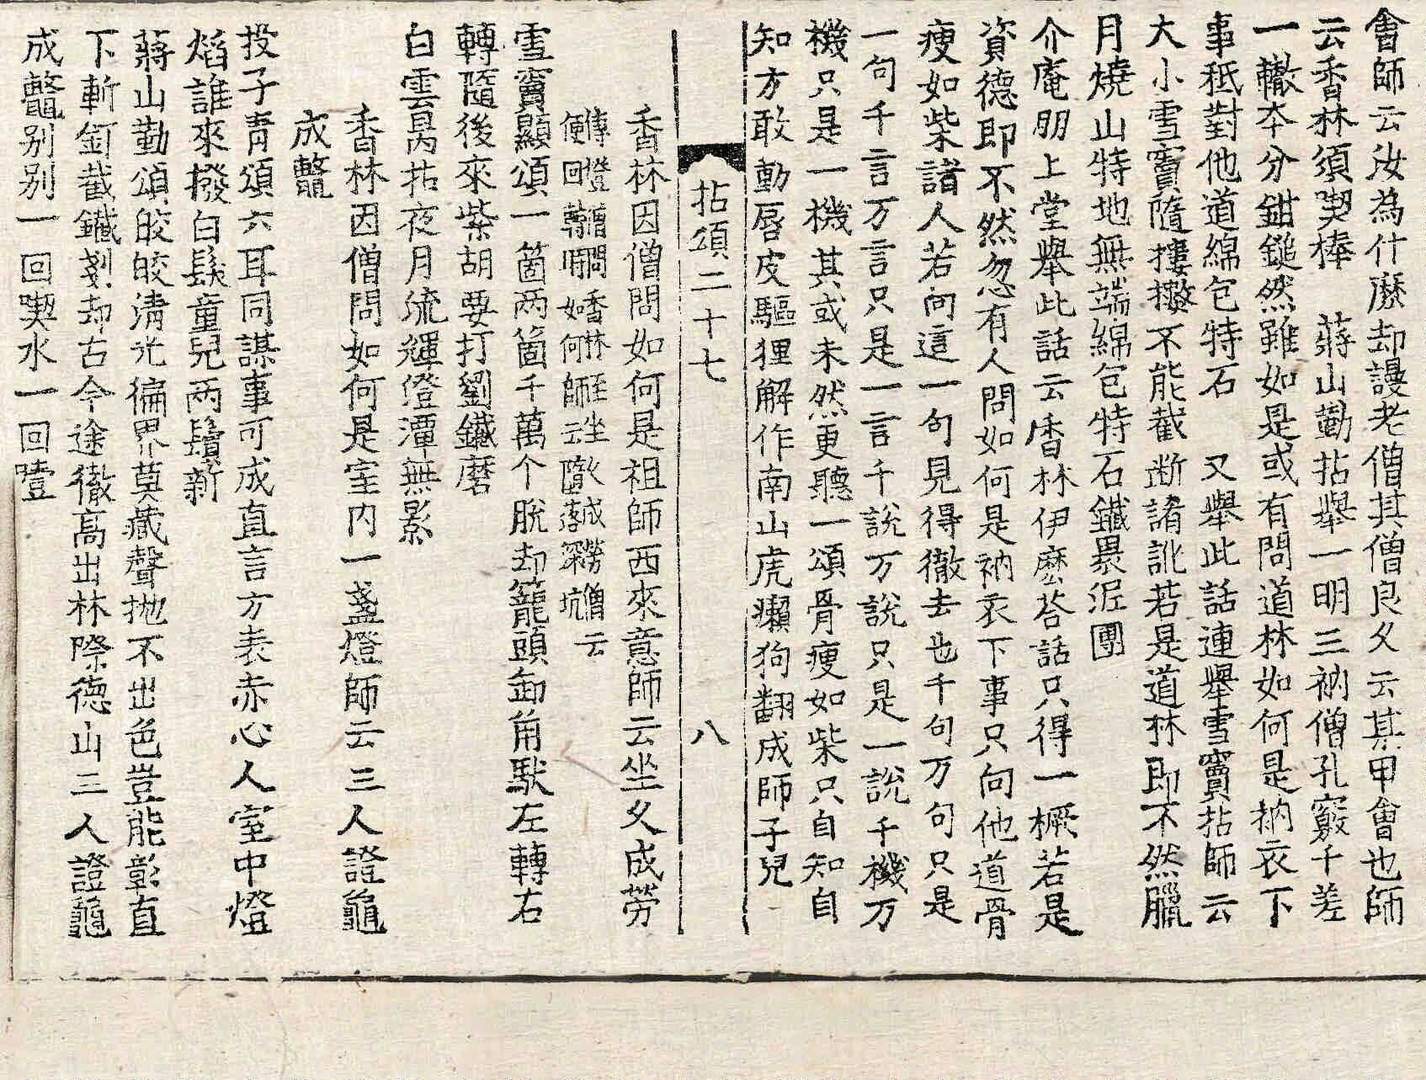 會師云汝為什麽却謾老僧其僧良久云某甲會也師
云香林須喫棒　蔣山勤拈舉一明三衲僧孔竅千差
一轍夲分鉗鎚然雖如是或有問道林如何是衲衣下
事秪對他道綿包特石　又舉此話連舉雪竇拈師云
大小雪竇隨摟㩧不能截断誵訛若是道林即不然臘
月燒山特地無端綿包特石鐵裹泥團
介庵朋上堂舉此話云香林伊麽荅話只得一橛若是
資德即不然忽有人問如何是衲衣下事只向他道骨
瘦如柴諸人若向這一句見得徹去也千句万句只是
一句千言万言只是一言千說万說只是一說千機万
機只是一機其或未然更聽一頌骨瘦如柴只自知自
知方敢動唇皮驅狸解作南山虎癩狗翻成師子兒
拈頌二十七　八
香林因僧問如何是祖師西來意師云坐久成勞
傳燈僧問香林至坐久成勞僧云
便回轉時如何師云墮落深坑
雪竇顯頌一箇两箇千萬个脫却籠頭卸角䭾左轉右
轉隨後來柴胡要打劉鐵磨
白雲昺拈夜月流輝澄潭無影
香林因僧問如何是室内一盞燈師云三人證龜
成鼈
投子青頌六耳同謀事可成直言方表赤心人室中燈
熖誰來撥白髮童兒两鬢新
蔣山勤頌皎皎清光徧界莫藏聲抛不出色豈能彰直
下斬釘截鐵剗却古今途徹高出林際德山三人證龜
成鼈别别一回喫水一回噎